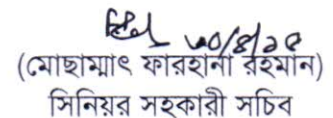 ৩০/৪/১৫
(মোছাম্মাৎ ফারহানা রহমান)
সিনিয়র সহকারী সচিব